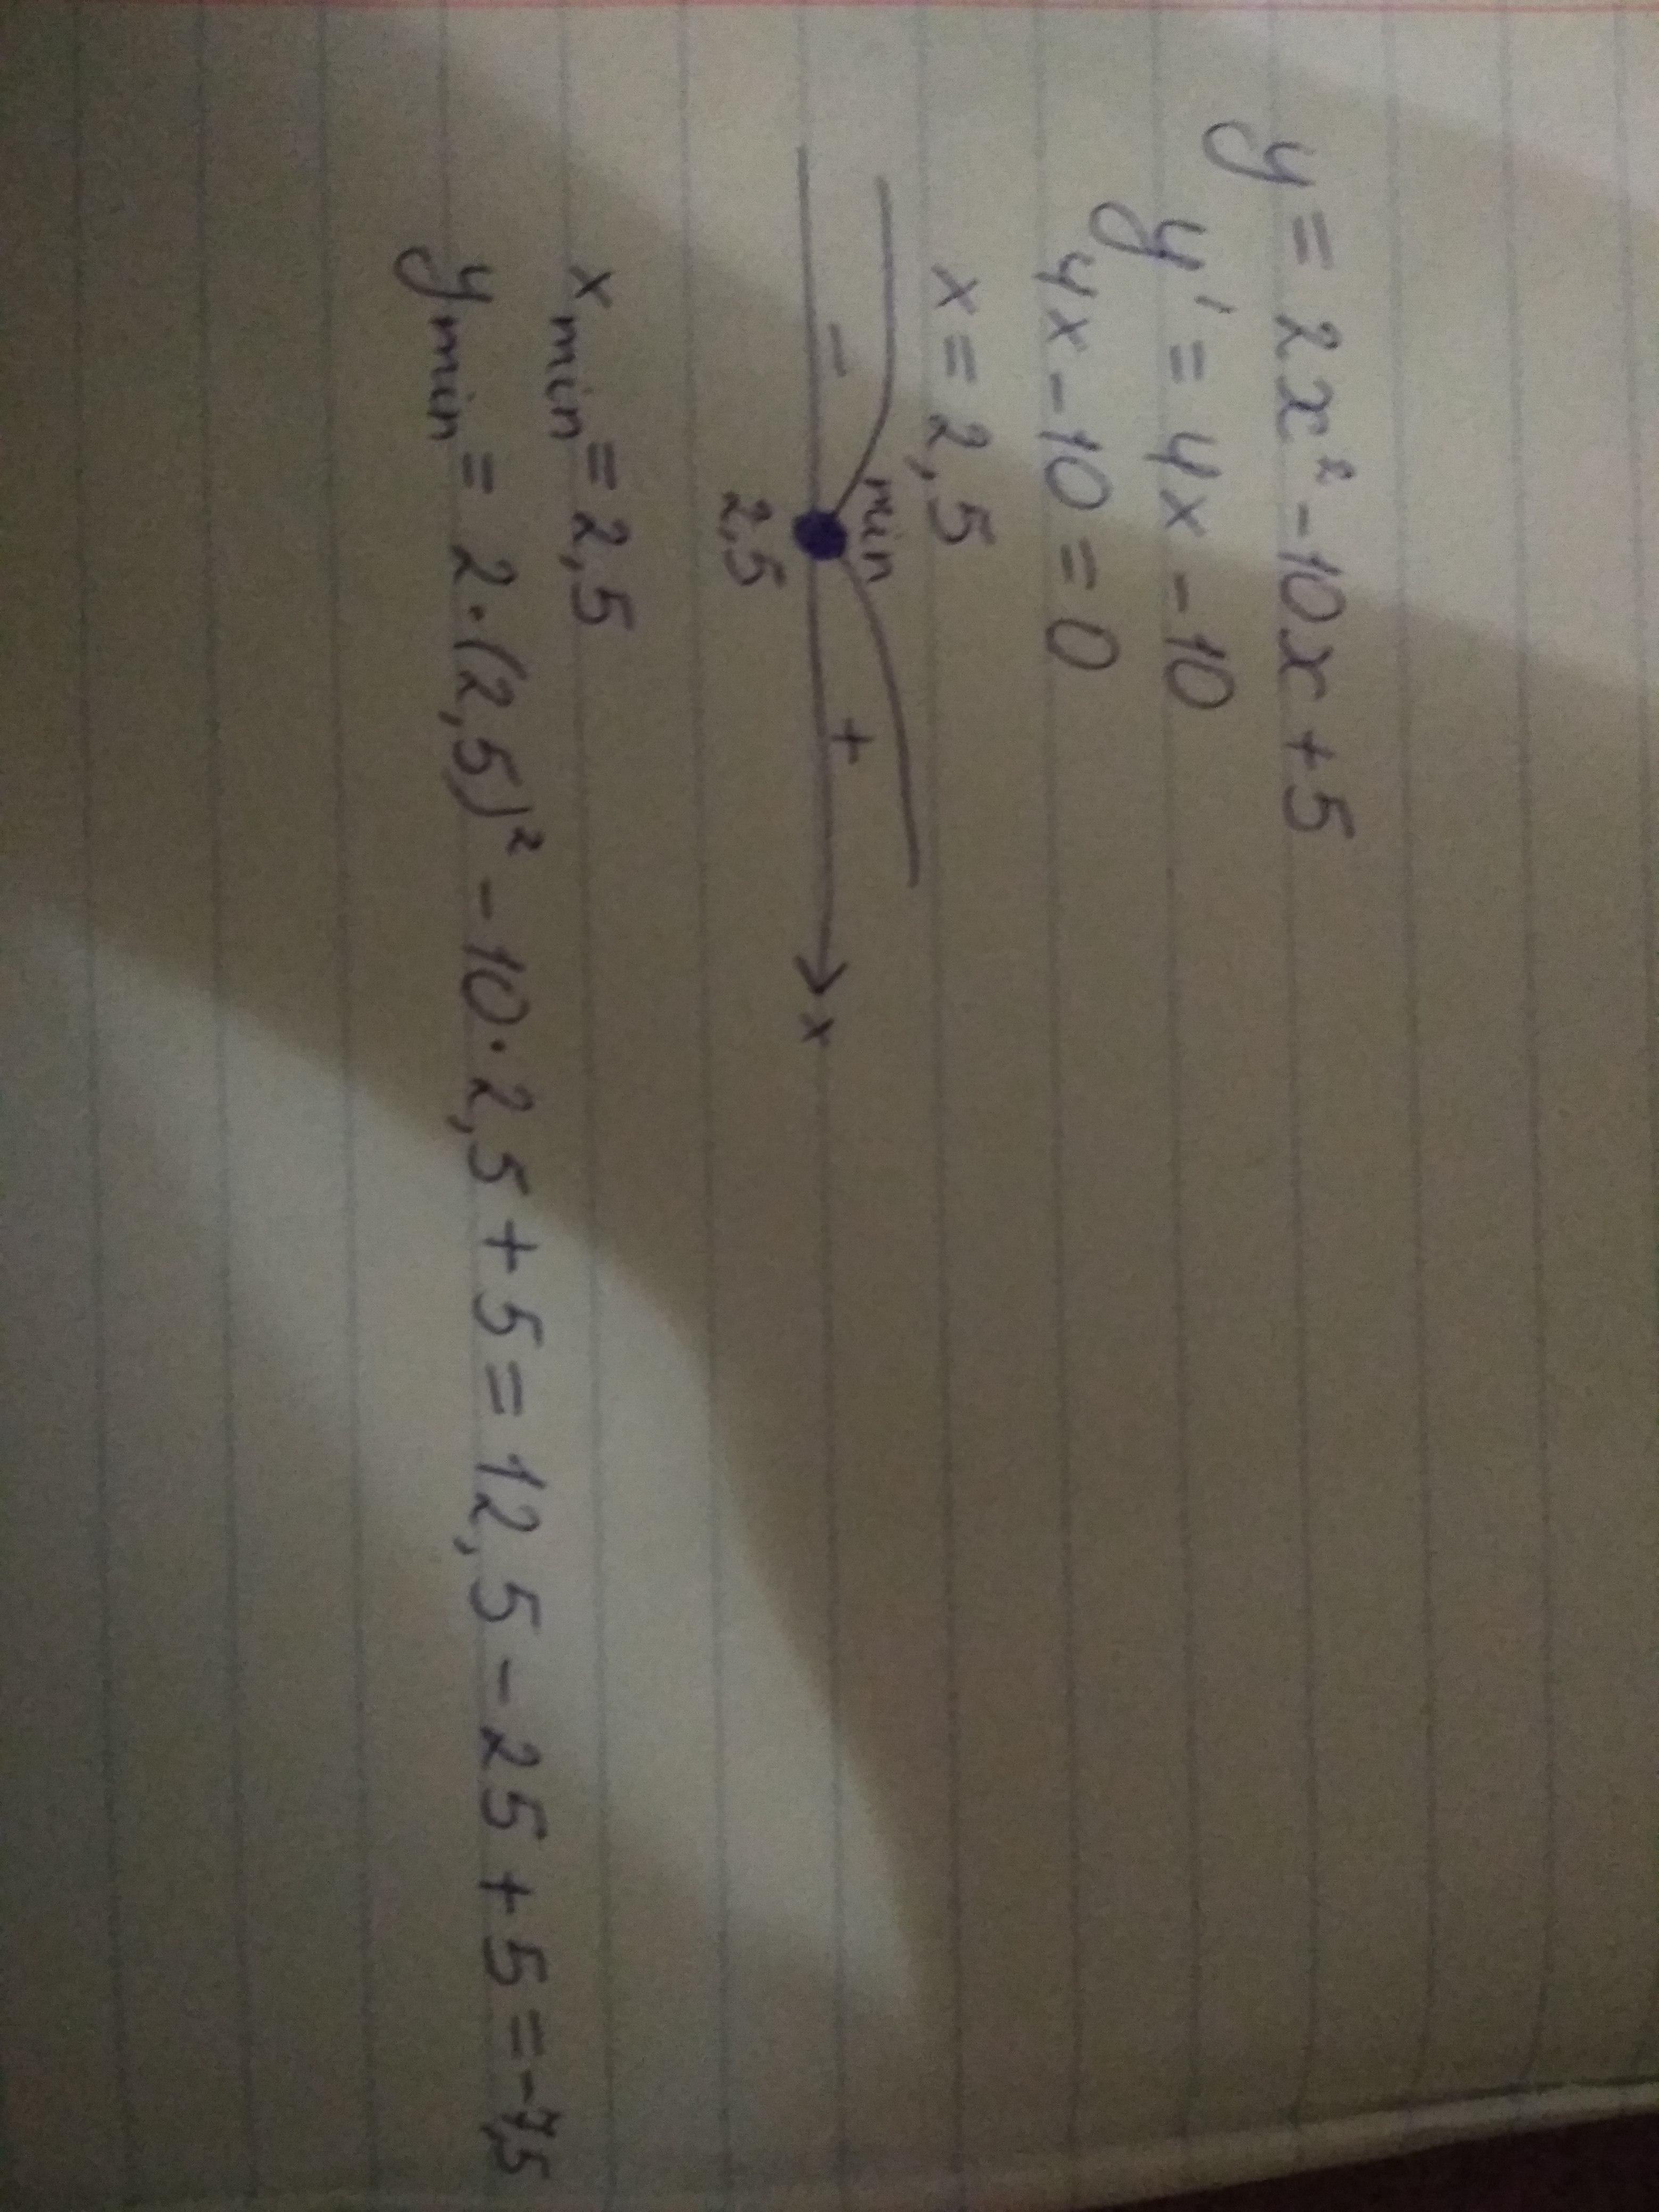 y = 2x² - 10x + 5
y' = 4x - 10
4x - 10 = 0
x = 2,5
min
- +
x
2,5
x min = 2,5
y min = 2·(2,5)² - 10·2,5 + 5 = 12,5 - 25 + 5 = -7,5